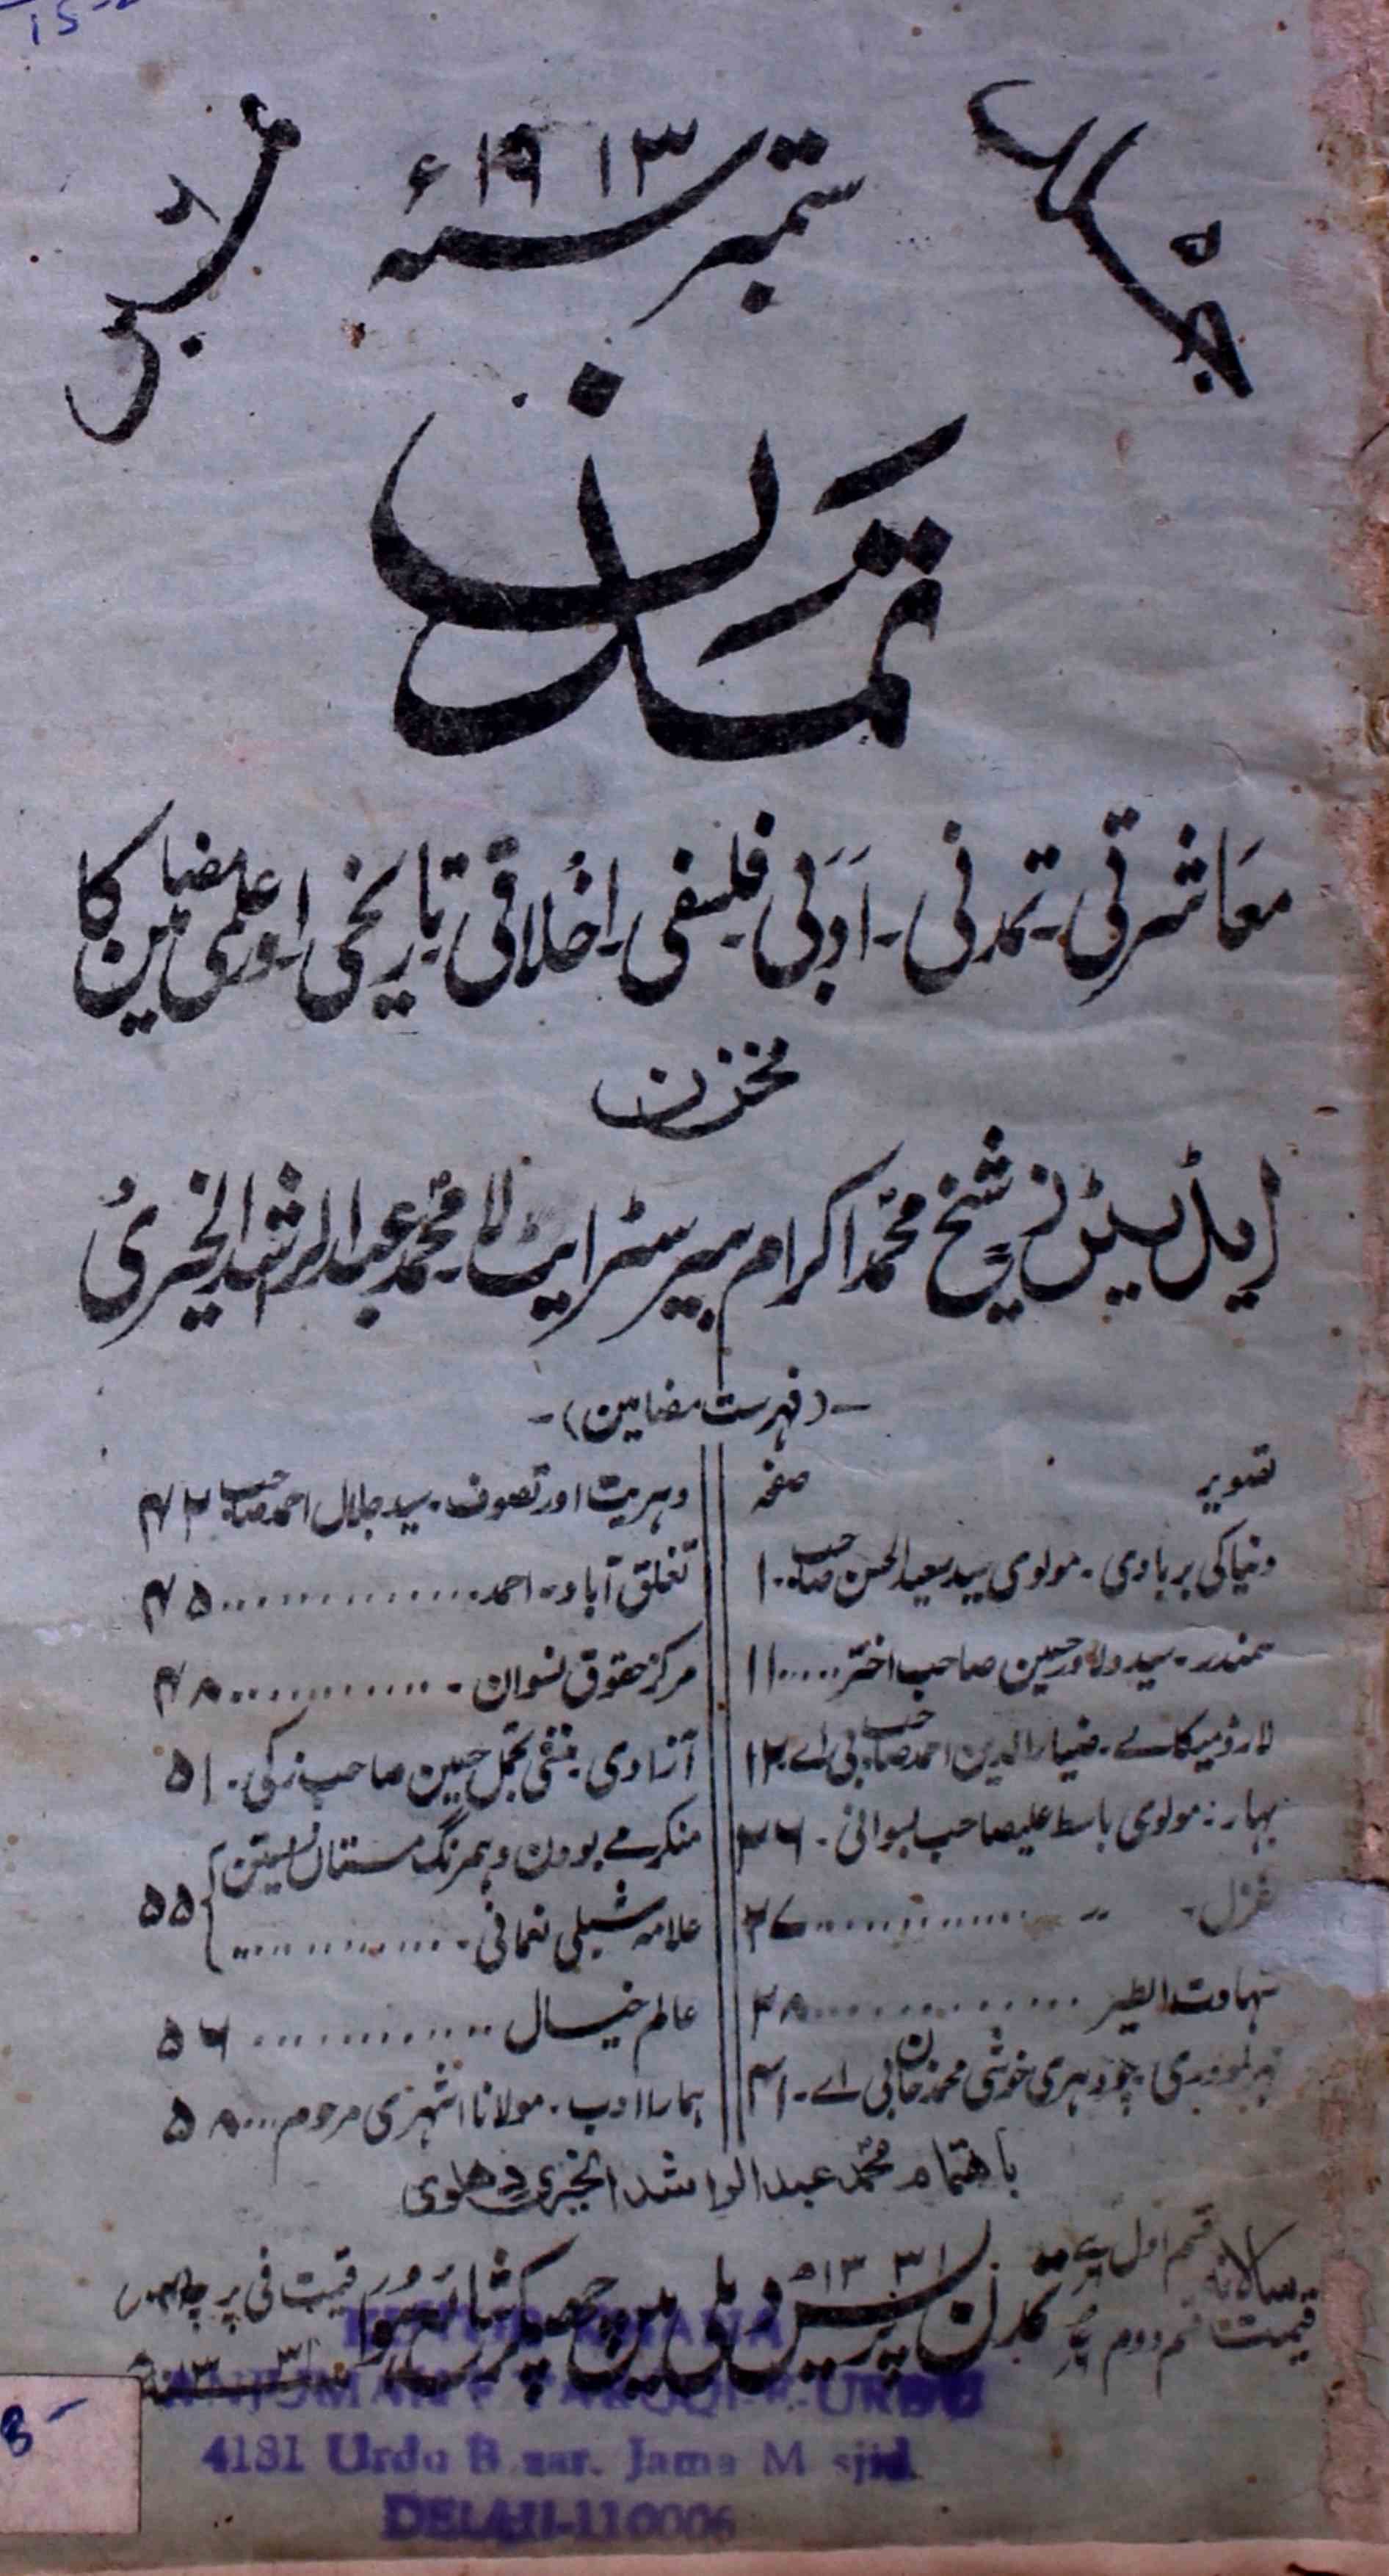 ستمبر سنہ ۱۹۱۳ء
جلد ۵
نمبر ۶
تمدن
معاشرتی۔ تمدنی۔ ادبی فلسفی۔ اخلاقی تاریخی اور علمی مضامین کا
مخزن
ایڈیٹرز شیخ محمد اکرام بیرسٹر ایٹ لا محمد عبدالراشد الخیری
۔(فہرست مضامین)۔
تصویر صفحہ
دنیا کی بربادی۔ مولوی سید سعید الحسن صاحب ۱۰
سمندر۔ سید دلاور حسین صاحب اختر ..... ۱۱
لارڈ میکالے۔ ضیاء الدین احمد صاحب بی اے ۱۲
بہار۔ مولوی باسط علیصاحب بسوانی۔ ۳۶
غزل۔ ............ ۳۷
............ ۳۸
چودھری خوشی محمد خان بی اے۔ ۴۱
دہریت اور تصوف۔ سید جلال احمد صاحب ۴۲
تغلق آباد۔ احمد ............ ۴۵
مرکز حقوق نسوان۔ ............ ۴۸
آزادی۔ منشی تجمل حسین صاحب زکی۔ ۵۱
منکر مے بودن و ہمرنگ مستان زیستن
علامہ شبلی نعمانی۔ ............ ۵۵
عالم خیال ............ ۵۶
ہمارا ادب۔ مولانا اشہری مرحوم ... ۵۸
باهتمام محمد عبدالراشد الخیری دهلوی
سالانہ قیمت قسم اول
قسم دوم
تمدن پریس دہلی مین چھپکر شائع ہوا
۱۳۳۱ھ
قیمت فی پرچہ
KUTUB KHANA
ANJUMAN-E-TARAQQI-E-URDU
4181 Urdu B zar. Jama M sjid.
DELHI-110006